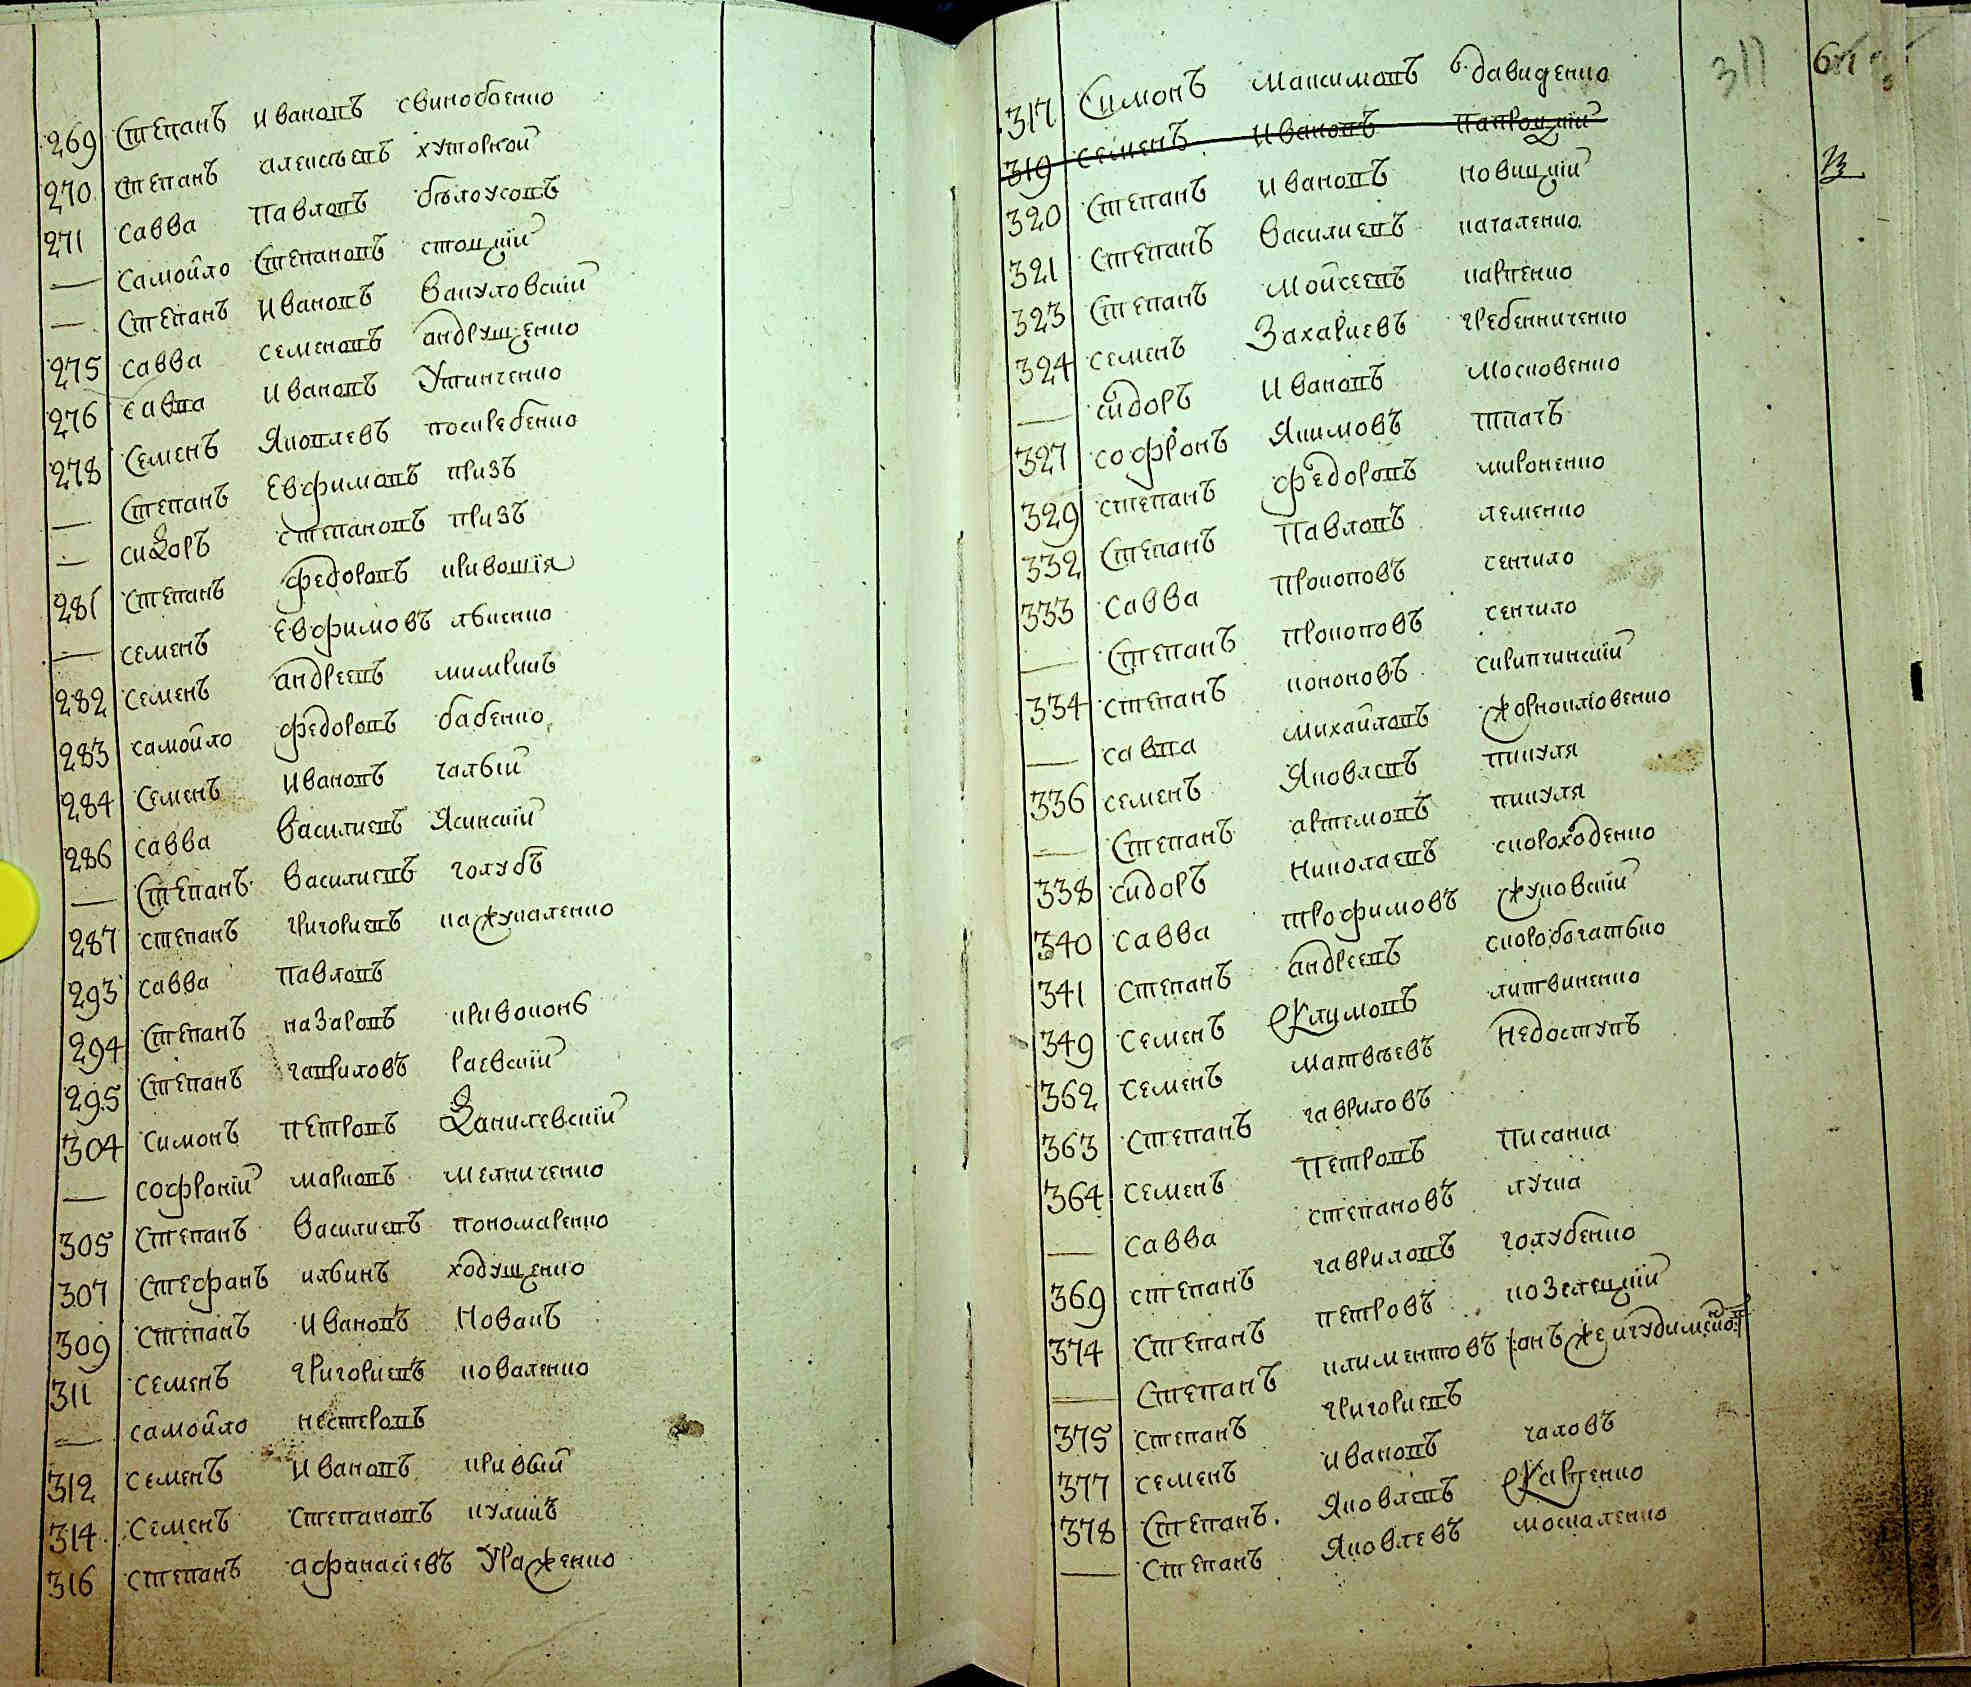 269 Степанъ Ивановъ свинобоенко
270 Степанъ алексѣевъ хуторной
271 Савва Павловъ бѣлоусовъ
— Самойло Степановъ стоцкій
— Степанъ Ивановъ Вакуловскій
275 Савва Семеновъ андрущенко
276 савва Ивановъ Утинченко
278 Семенъ Яковлевъ поскребенко
— Степанъ Евфимовъ призъ
— сидоръ степановъ призъ
281 Степанъ федоровъ кривошія
— семенъ Евфимовъ лбиенко
282 семенъ андреевъ мимрикъ
283 самойло федоровъ бабенко
284 Семенъ Ивановъ галый
286 Савва Василиевъ Ясинскій
— Степанъ Василиевъ голубъ
287 степанъ григориевъ кажукаленко
293 савва Павловъ
294 Степанъ назаровъ кривоконь
295 Степанъ гавриловъ раевскій
304 Симонъ Петровъ Данилевскій
— софроній марковъ мелниченко
305 Степанъ Василиевъ пономаренко
307 Стефанъ илбинъ ходущенко
309 Степанъ Ивановъ Новакъ
311 Семенъ григориевъ коваленко
— самойло нестеровъ
312 семенъ Ивановъ кривый
314 Семенъ Степановъ куликъ
316 степанъ афанасіевъ Ураженко
311
317 Симонъ Максимовъ давиденко
319 семенъ Ивановъ
320 Степанъ Ивановъ новицкій
321 Степанъ Василиевъ каталенко
323 Степанъ Мойсеевъ карпенко
324 семенъ Захариевъ гребенниченко
— сидоръ Ивановъ Московенко
327 софронъ Якимовъ ткачъ
329 степанъ федоровъ мироненко
332 Степанъ Павловъ леменко
333 Савва Прокоповъ сенчило
— Степанъ Прокоповъ сенчило
334 степанъ кононовъ скрипчинскій
— савва михайловъ жорноклювенко
336 семенъ Яковлевъ пикуля
— Степанъ артемовъ пикуля
338 сидоръ Николаевъ скороходенко
340 Савва трофимовъ жуковскій
341 Степанъ андреевъ скоробогатько
349 Семенъ Климовъ литвиненко
362 Семенъ матвѣевъ Недоступъ
363 Степанъ гавриловъ
364 семенъ Петровъ Писанка
— савва степановъ лучка
369 степанъ гавриловъ голубенко
374 Степанъ петровъ козелецкій
— Степанъ климентовъ онъ же
375 степанъ григориевъ
377 семенъ Ивановъ галовъ
378 Степанъ Яковлевъ Карпенко
— Степанъ Яковлевъ москаленко